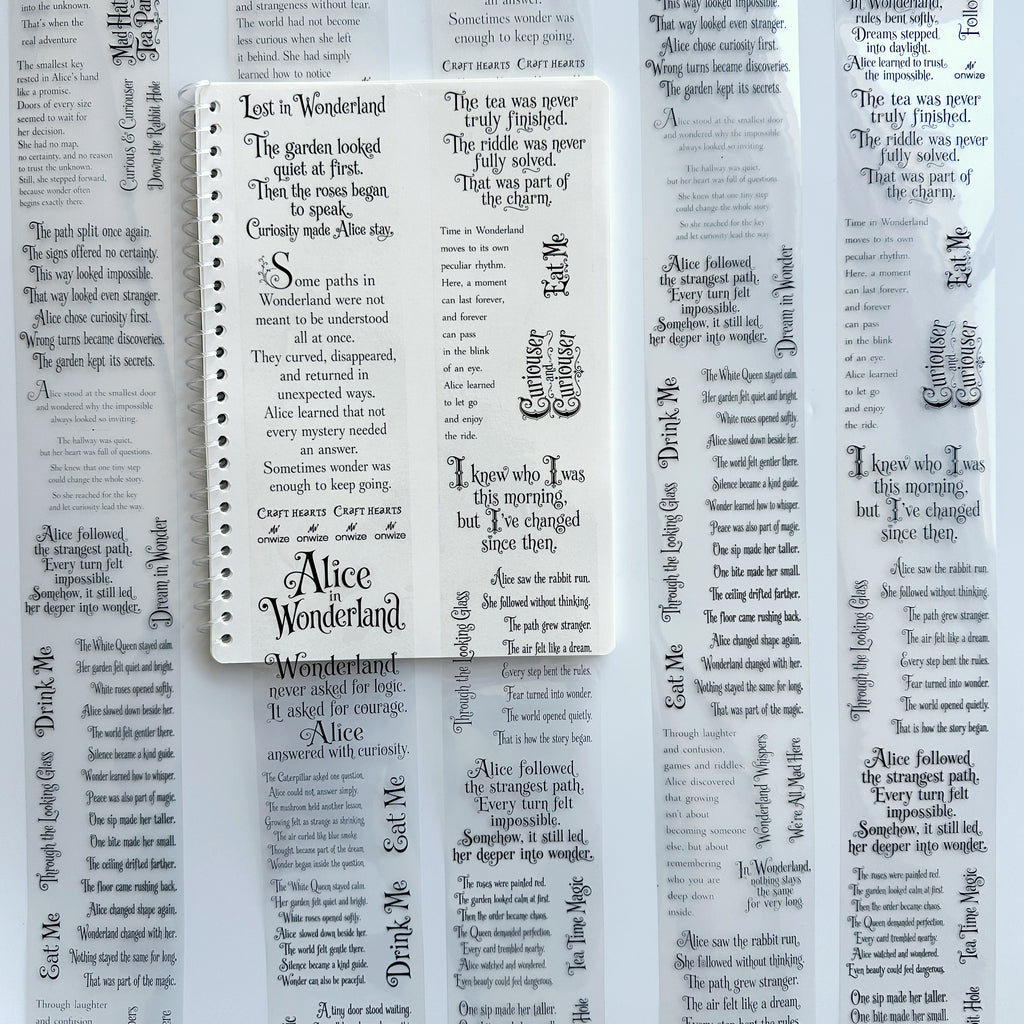 into the unknown.
That's when the
real adventure
The smallest key
rested in Alice's hand
like a promise.
Doors of every size
seemed to wait for
her decision.
She had no map.
no certainty, and no reason
to trust the unknown.
Still, she stepped forward,
because wonder often
begins exactly there.
Mad Hat
Tea Par
Curious & Curiouser
Down the Rabbit Hole
The path split once again.
The signs offered no certainty.
This way looked impossible.
That way looked even stranger.
Alice chose curiosity first.
Wrong turns became discoveries.
The garden kept its secrets.
Alice stood at the smallest door
and wondered why the impossible
always looked so inviting.
The hallway was quiet,
but her heart was full of questions.
She knew that one tiny step
could change the whole story.
So she reached for the key
and let curiosity lead the way.
Alice followed
the strangest path.
Every turn felt
impossible.
Somehow, it still led
her deeper into wonder.
Dream in Wonder
The White Queen stayed calm.
Her garden felt quiet and bright.
White roses opened softly.
Alice slowed down beside her.
The world felt gentler there.
Silence became a kind guide.
Wonder learned how to whisper.
Peace was also part of magic.
One sip made her taller.
One bite made her small.
The ceiling drifted farther.
The floor came rushing back.
Alice changed shape again.
Wonderland changed with her.
Nothing stayed the same for long.
That was part of the magic.
Drink Me
Through the Looking Glass
Eat Me
Through laughter
and confusion,
and strangeness without fear.
The world had not become
less curious when she left
it behind. She had simply
learned how to notice
Lost in Wonderland
The garden looked
quiet at first.
Then the roses began
to speak.
Curiosity made Alice stay.
Some paths in
Wonderland were not
meant to be understood
all at once.
They curved, disappeared,
and returned in
unexpected ways.
Alice learned that not
every mystery needed
an answer.
Sometimes wonder was
enough to keep going.
CRAFT HEARTS CRAFT HEARTS
onwize onwize onwize onwize
Alice
in
Wonderland
Wonderland
never asked for logic.
It asked for courage.
Alice
answered with curiosity.
The Caterpillar asked one question,
Alice could not answer simply.
The mushroom held another lesson,
Growing felt as strange as shrinking.
The air curled like blue smoke.
Thought became part of the dream,
Wonder began inside the question.
Eat Me
The White Queen stayed calm.
Her garden felt quiet and bright.
White roses opened softly.
Alice slowed down beside her.
The world felt gentle there.
Silence became a kind guide.
Wonder can also be peaceful.
Drink Me
A tiny door stood waiting.
an answer.
Sometimes wonder was
enough to keep going.
CRAFT HEARTS CRAFT HEARTS
The tea was never
truly finished.
The riddle was never
fully solved.
That was part of
the charm.
Time in Wonderland
moves to its own
peculiar rhythm.
Here, a moment
can last forever,
and forever
can pass
in the blink
of an eye.
Alice learned
to let go
and enjoy
the ride.
Eat Me
Curiouser
and
Curiouser
I knew who I was
this morning,
but I've changed
since then.
Through the Looking Glass
Alice saw the rabbit run.
She followed without thinking.
The path grew stranger.
The air felt like a dream.
Every step bent the rules.
Fear turned into wonder.
The world opened quietly.
That is how the story began.
Alice followed
the strangest path.
Every turn felt
impossible.
Somehow, it still led
her deeper into wonder.
The roses were painted red.
The garden looked calm at first.
Then the order became chaos.
The Queen demanded perfection.
Every card trembled nearby.
Alice watched and wondered.
Even beauty could feel dangerous.
Tea Time Magic
One sip made her taller.
One bite made her small.
Hole
This way looked impossible.
That way looked even stranger.
Alice chose curiosity first.
Wrong turns became discoveries.
The garden kept its secrets.
Alice stood at the smallest door
and wondered why the impossible
always looked so inviting.
The hallway was quiet,
but her heart was full of questions.
She knew that one tiny step
could change the whole story.
So she reached for the key
and let curiosity lead the way.
Alice followed
the strangest path.
Every turn felt
impossible.
Somehow, it still led
her deeper into wonder.
Dream in Wonder
The White Queen stayed calm.
Her garden felt quiet and bright.
White roses opened softly.
Alice slowed down beside her.
The world felt gentler there.
Silence became a kind guide.
Wonder learned how to whisper.
Peace was also part of magic.
One sip made her taller.
One bite made her small.
The ceiling drifted farther.
The floor came rushing back.
Alice changed shape again.
Wonderland changed with her.
Nothing stayed the same for long.
That was part of the magic.
Drink Me
Through the Looking Glass
Eat Me
Through laughter
and confusion,
games and riddles,
Alice discovered
that growing
isn't about
becoming someone
else, but about
remembering
who you are
deep down
inside.
Wonderland Whispers
We're All Mad Here
In Wonderland,
nothing stays
the same
for very long.
Alice saw the rabbit run,
She followed without thinking.
The path grew stranger.
The air felt like a dream,
Every step bent the rules.
In Wonderland,
rules bent softly.
Dreams stepped
into daylight.
Alice learned to trust
the impossible.
onwize
Follo
The tea was never
truly finished.
The riddle was never
fully solved.
That was part of
the charm.
Time in Wonderland
moves to its own
peculiar rhythm.
Here, a moment
can last forever,
and forever
can pass
in the blink
of an eye.
Alice learned
to let go
and enjoy
the ride.
Eat Me
Curiouser
and
Curiouser
I knew who I was
this morning,
but I've changed
since then.
Through the Looking Glass
Alice saw the rabbit run.
She followed without thinking.
The path grew stranger.
The air felt like a dream.
Every step bent the rules.
Fear turned into wonder.
The world opened quietly.
That is how the story began.
Alice followed
the strangest path.
Every turn felt
impossible.
Somehow, it still led
her deeper into wonder.
The roses were painted red.
The garden looked calm at first.
Then the order became chaos.
The Queen demanded perfection.
Every card trembled nearby.
Alice watched and wondered.
Even beauty could feel dangerous.
Tea Time Magic
One sip made her taller.
One bite made her small.
bit Hole